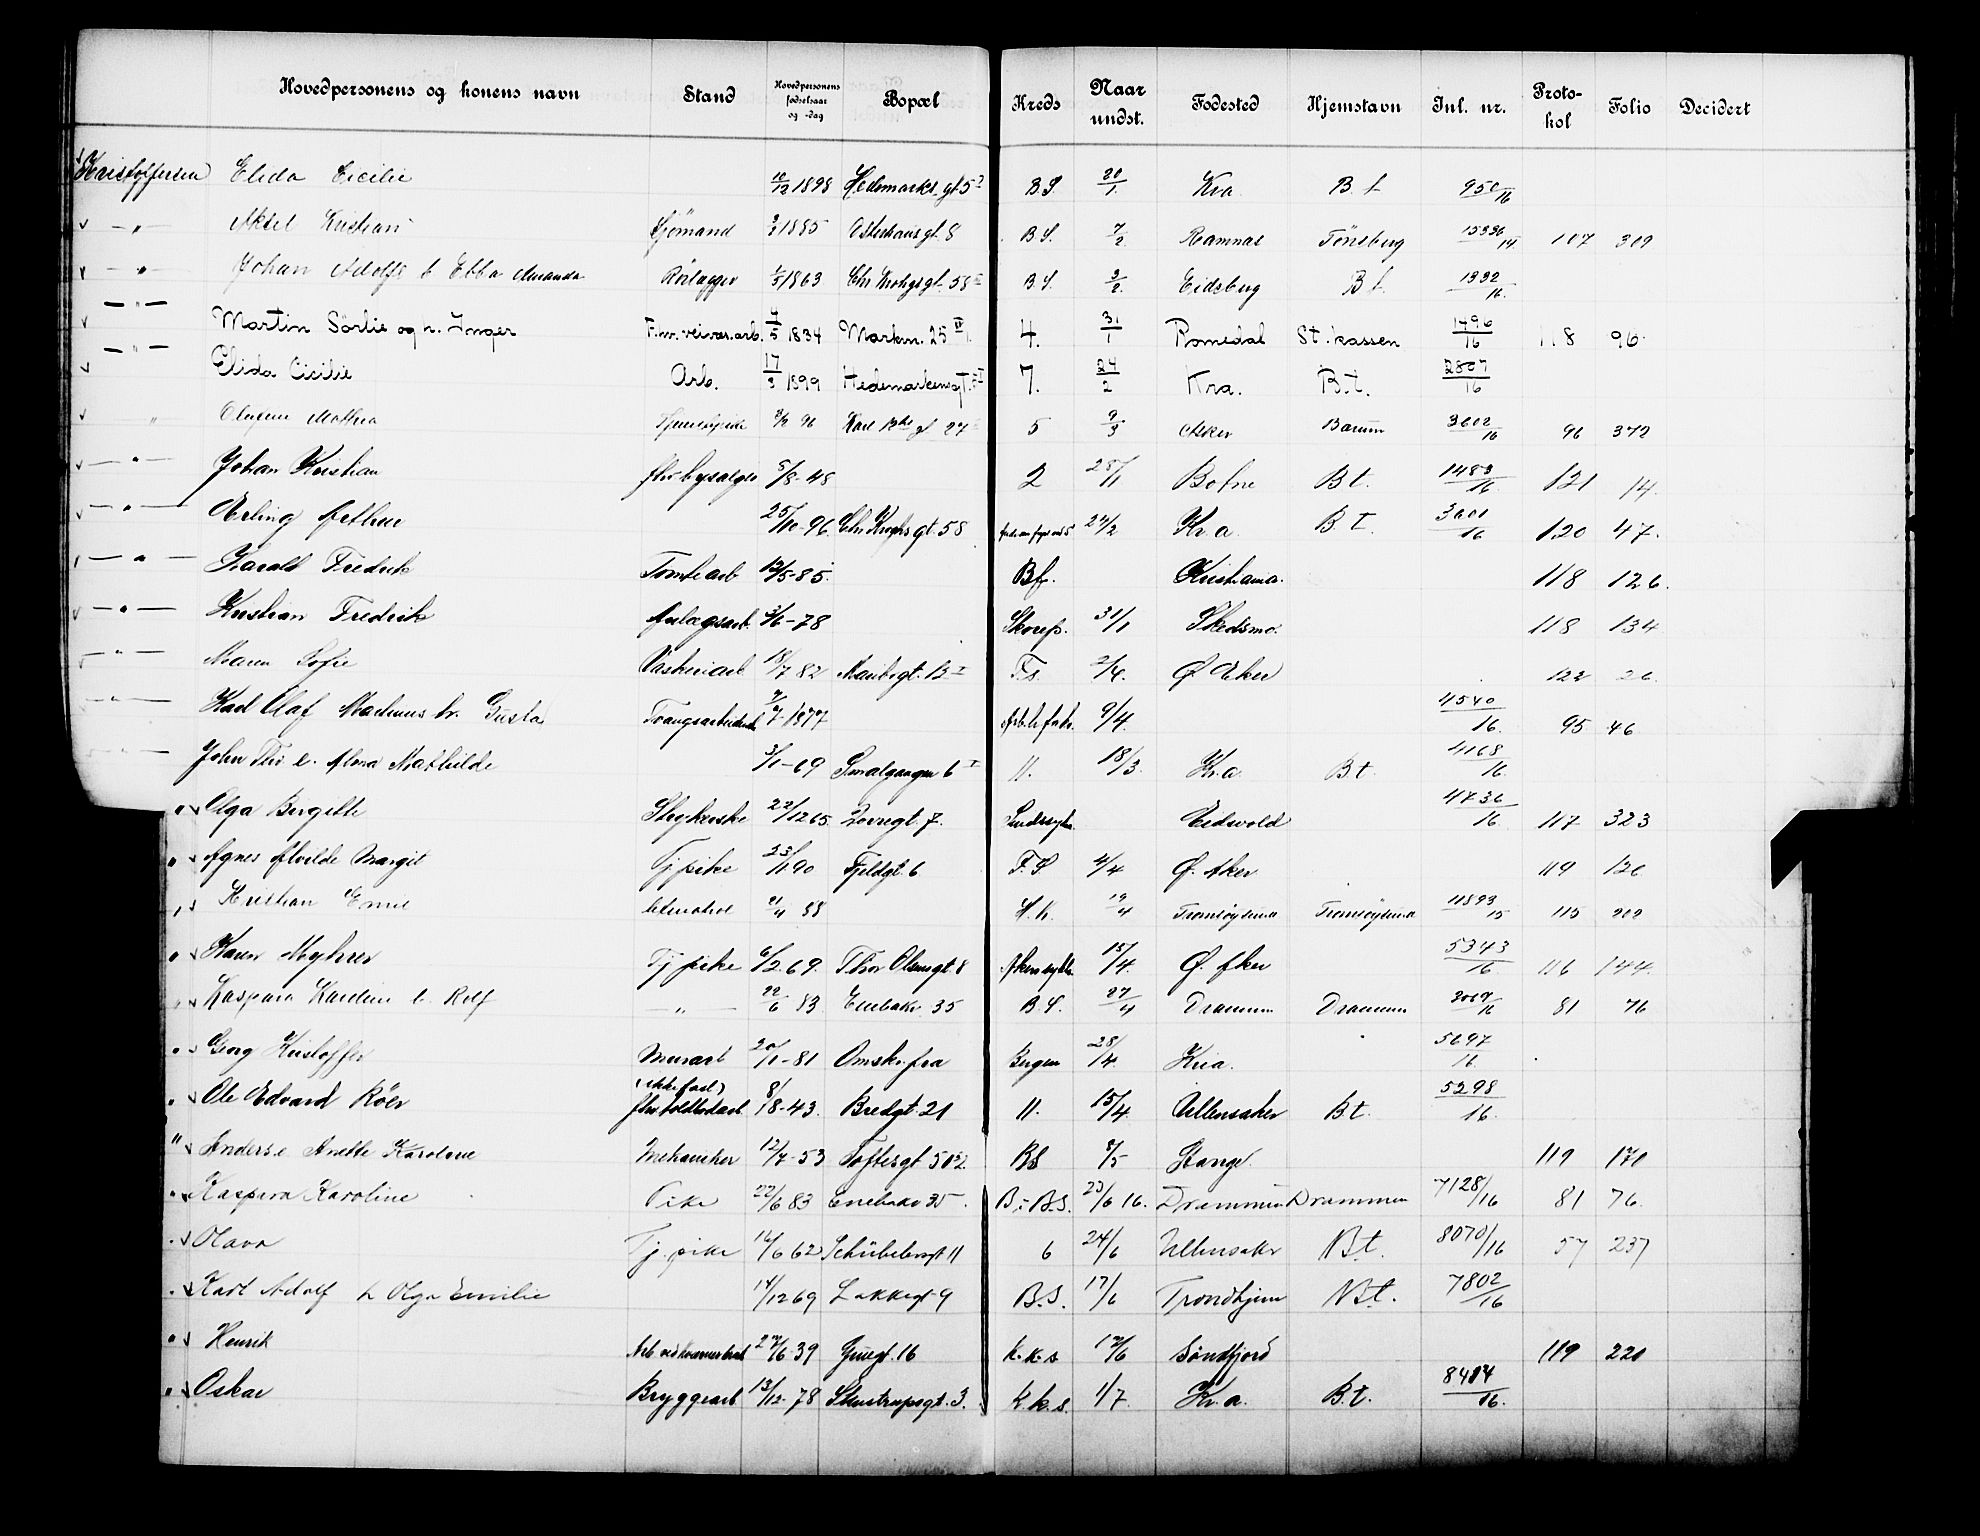 Hovedpersonens og konens navn Stand Hovedpersonens fødselsaar og -dag Bopæl Kreds Naar undst. Fødested Hjemstavn Inl. nr. Proto-kol Folio Decidert
Kristoffersen Elida Cicilie 10/12 1898 Hedemarks gt 5 B.S. 20/1. Kra. B.t 950/16
— " — Aksel Kristian Sjömand 3/3 1885 Osterhausgt. 8 B.S. 7/2 Ramnæs Tönsberg 15336/14 107 309
— " — Johan Adolf & h Ebba Amanda Rörlægger 1/5 1863 Chr Krohgs gt. 58 B.S. 3/2. Eidsberg B.t. 1332/16.
— " — Martin Sörlie og h. Inger F.hv. veivæs.arb. 4/5 1834 Markvn. 25 IV 4. 31/1 Romedal St.kassen 1496/16 118 96.
— " — Elida Cicilie Arb. 17/3 1899 Hedemarkensgt. 5 I 7. 24/2 Kra. B.t. 2807/16
" Oluline Mathea Tjenestepike 3/2 96 Karl 12tes gt 27 5 9/3 Aker Bærum 3602/16 96 372
— " — Johan Kristian fhv bysælger 5/8-48 2 28/1 Botne Bt. 1483/16. 121 14.
— " — Erling Arthur 25/10-96 Chr Krohgs gt. 58 24/2 Kr.a. B.T. 3001/16 120 47.
— " — Harald Fredrik Tomtearb 12/5-85. Bf. Kristiania. 118 126.
— " — Kristian Fredrik Anlægsarb. 3/6-78 Skorefs. 31/1 Skedsmo. 118 134
— " — Maren Sofie Væskeriarb 18/7 82 Maribogt. 13 I F.s. 2/4. Ø Aker 122 26.
— " — Karl Olaf Marinius h. Gusta Trangsarbeider 7/7-1877 9/4. 4540/16. 95 46
— " — John Thv e. Alma Mathilde 3/1-69 Smalgangen 6 I 11. 18/3. Kr.a. Bt. 4168/16.
" Olga Bergitte Strykerske 22/12 65. Zorregt. 7. Eidsvold 4736/16. 117 323
" Agnes Alvilde Margit Tj pike 23/11 90 Fjeldgt. 6 F.S 4/4 Ø. Aker 119 126
Kristian Emil 21/4 88 H.K. 19/4 Tromsöysund Tromsöysund 11893/15 115 202
" Karen Myhrer Tj pike 6/2.69. Thor Olsensgt. 8 Akers sykh. 15/4. Ø. Aker 5343/16. 116 144.
" Kaspara Karoline h. Rolf — " — 22/6 83 Enebakv 35 B.S. 27/4 Drammen Drammen 3069/16 81 76
" Georg Kristoffer Murarb 20/1-81 Omskifra Bergen 28/4. Kria. 5697/16.
" Ole Edvard Röer (ikke fast) fhv toldbodarb 8/8-43. Bredgt. 21 11. 15/4 Ullensaker Bt. 5298/16.
" Anders e Anette Karoline Mekaniker 12/7-53 Toftesgt 50 BS 8/5 Stange. 119 170
" Kaspara Karoline Pike 22/6 83 Enebakv 35. B.i B.S. 23/6 16. Drammen Drammen 7128/16 81 76.
" Olava Tj. pike 16/6 62 Schübelersgt 11 6 24/6 Ullensaker N.t. 8070/16 57 237
" Karl Adolf h Olga Emilie 14/12 69 Lakkegt 9 B.S. 17/6 Trondhjem N.t. 7802/16
" Henrik 27/6-39 Gruegt. 16 K.K.s 12/6 Söndfjord 119 220
" Oskar Bryggearb 13/12-78 Stenstrupsgt. 3. K.K.s. 1/7. Kr.a. B.t. 8414/16.